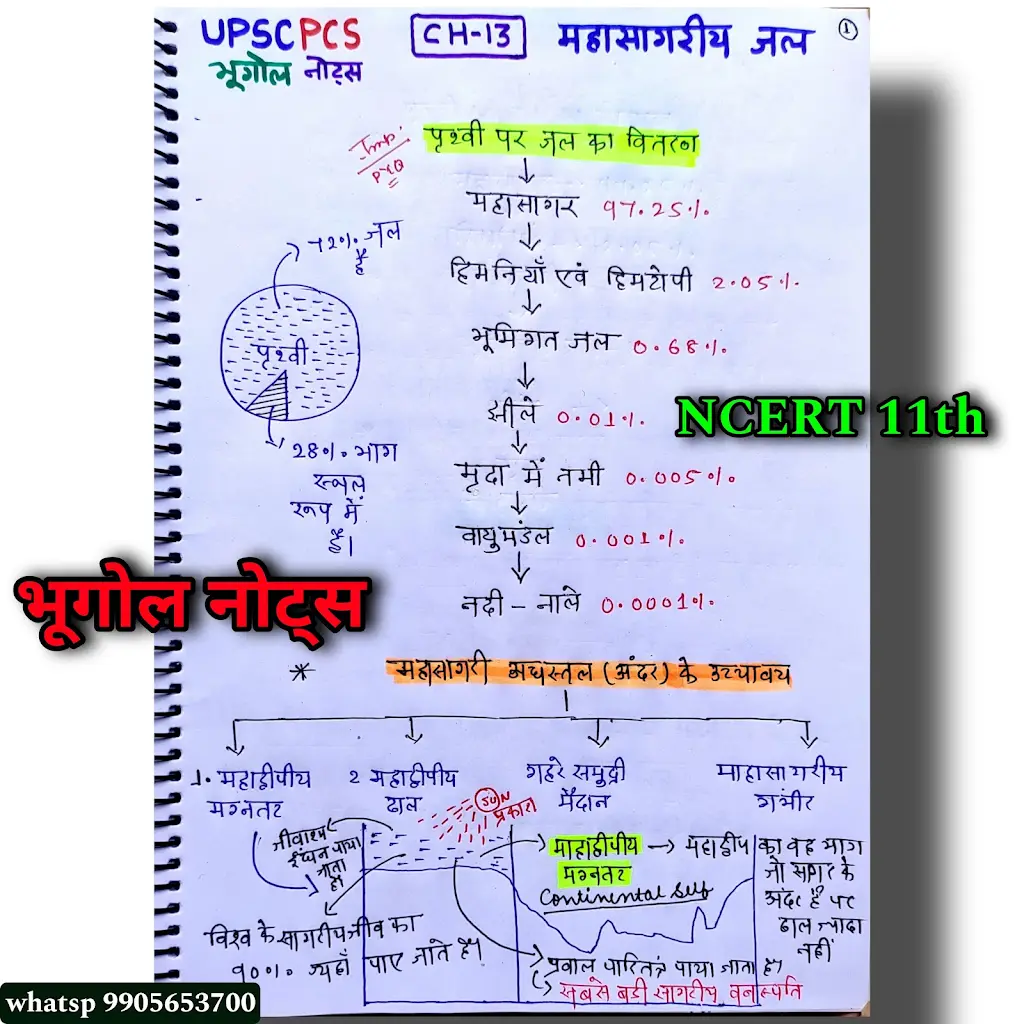 UPSC PCS
भूगोल नोट्स
CH-13
महासागरीय जल
1
Imp.
PYQ
पृथ्वी पर जल का वितरण
महासागर 97.25%
हिमनियाँ एवं हिमटोपी 2.05%
भूमिगत जल 0.68%
झीले 0.01%
मृदा में नमी 0.005%
वायुमंडल 0.001%
नदी - नाले 0.0001%
72% जल
है
पृथ्वी
28% भाग
स्थल
रूप में
है।
NCERT 11th
भूगोल नोट्स
* महासागरी अधस्तल (अंदर) के उच्चावच
1. महाद्वीपीय
मग्नतट
2 महाद्वीपीय
ढाल
गहरे समुद्री
मैदान
माहासागरीय
गंभीर
SUN
प्रकाश
जीवाश्म
ईंधन पाया
जाता
है।
माहाद्वीपीय
मग्नतट
Continental Self
→ महाद्वीप का वह भाग
जो सागर के
अंदर है पर
ढाल ज्यादा
नहीं
विश्व के सागरीय जीव का
90% यहाँ पाए जाते है।
प्रवाल पारितंत्र पाया जाता है।
सबसे बड़ी सागरीय वनस्पति
whatsp 9905653700